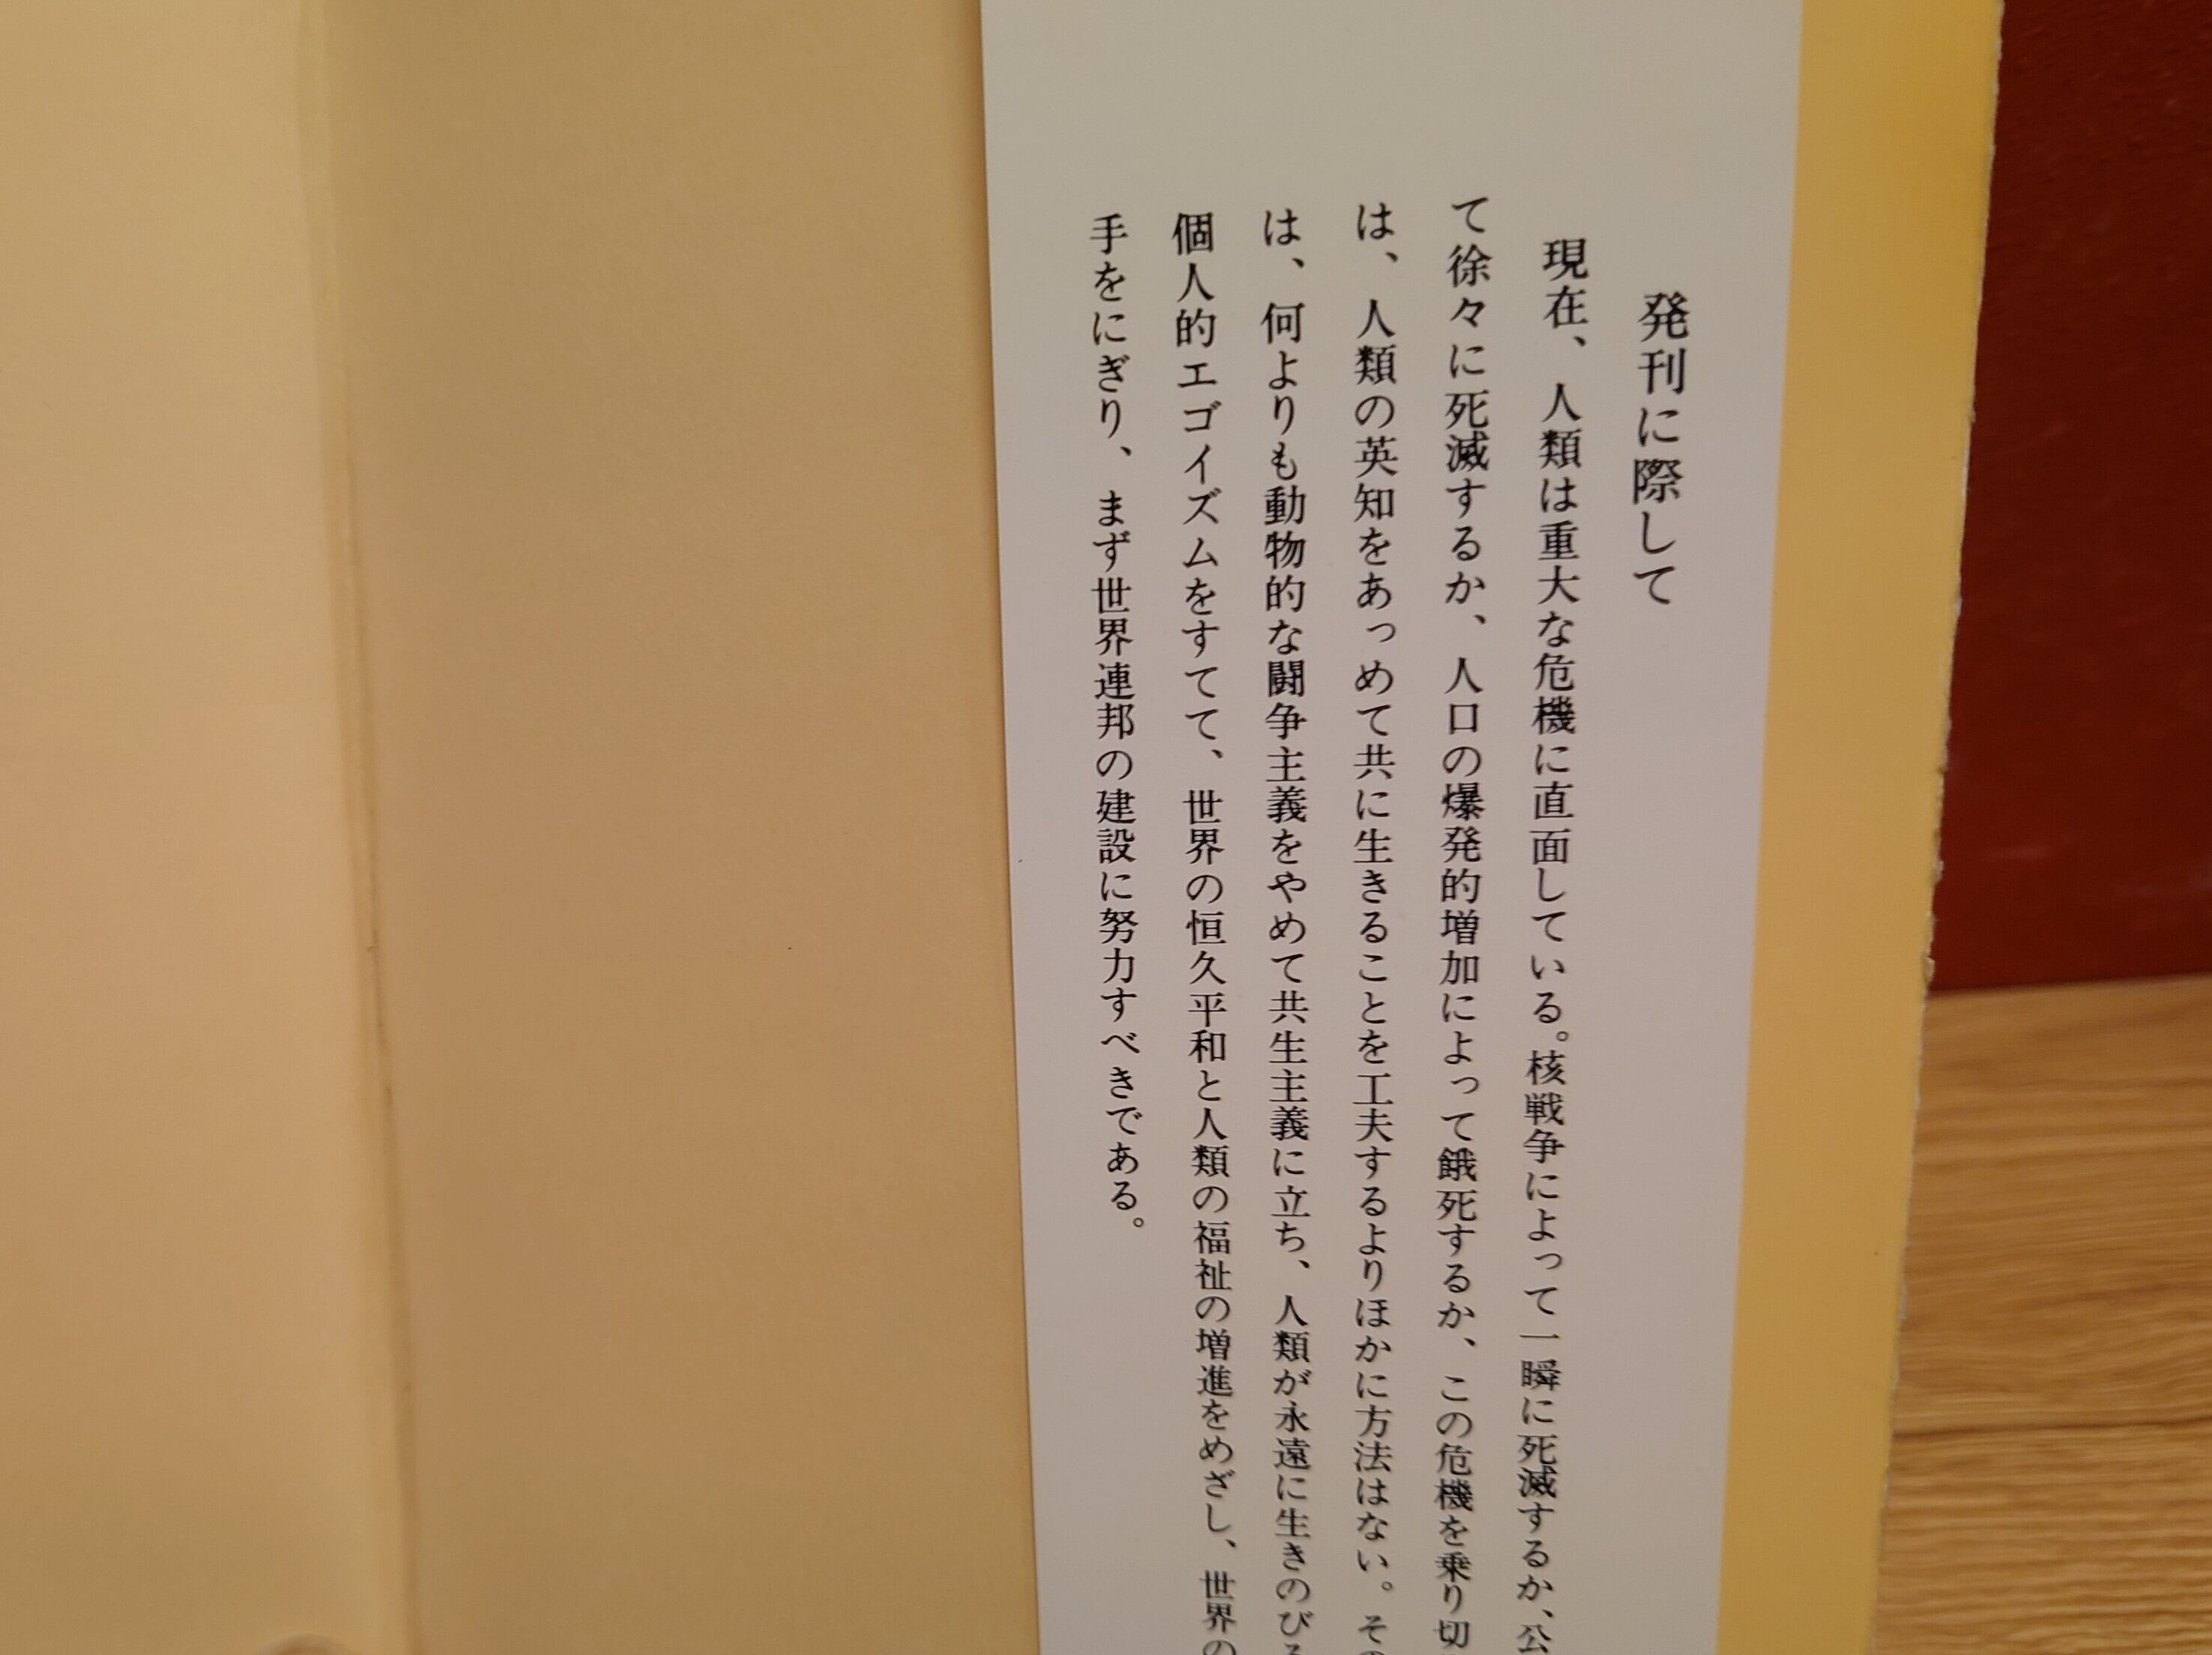 発刊に際して
現在、人類は重大な危機に直面している。核戦争によって一瞬に死滅するか、公
て徐々に死滅するか、人口の爆発的増加によって餓死するか、この危機を乗り切
は、人類の英知をあつめて共に生きることを工夫するよりほかに方法はない。その
は、何よりも動物的な闘争主義をやめて共生主義に立ち、人類が永遠に生きのびる
個人的エゴイズムをすてて、世界の恒久平和と人類の福祉の増進をめざし、世界の
手をにぎり、まず世界連邦の建設に努力すべきである。